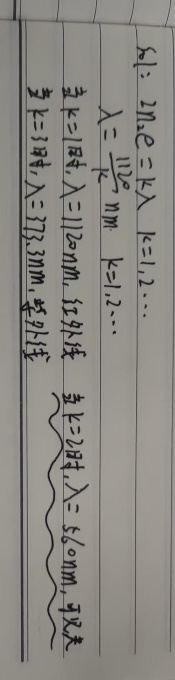 sol: 2n₂e = kλ k=1,2...
λ = 1120/k nm k=1,2...
当k=1时, λ=1120nm, 红外线 当k=2时, λ=560nm, 可见光
当k=3时, λ=373.3nm, 紫外线